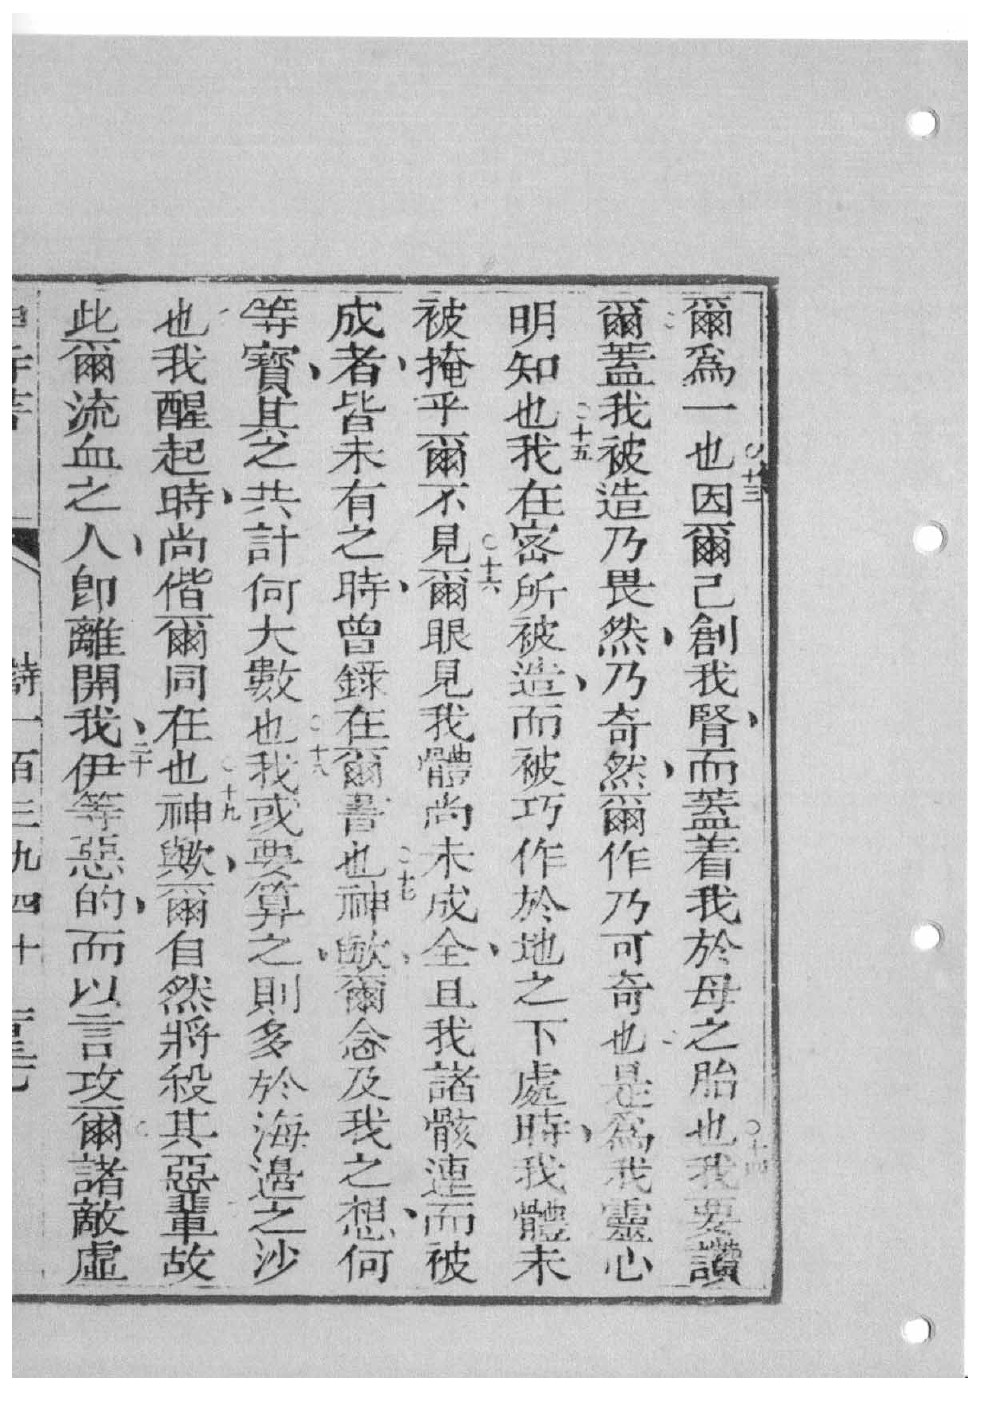 爾爲一也○十三因爾己創我腎、而蓋着我於母之胎也○十四我要讚
爾蓋我被造乃畏然、乃奇然、爾作乃可奇也是爲我靈心
明知也○十五我在密所被造、而被巧作於地之下處時、我體未
被掩乎爾不見○十六爾眼見我體尚未成全、且我諸骸連而被
成者、皆未有之時、曾錄在爾書也○十七神歟、爾念及我之想、何
等寶、其之共計何大數也○十八我或要算之、則多於海邊之沙
也我醒起時、尚偕爾同在也○十九神歟、爾自然將殺其惡輩故
此爾流血之人、卽離開我、二十伊等惡的、而以言攻爾諸敵虛
詩一百三九四十